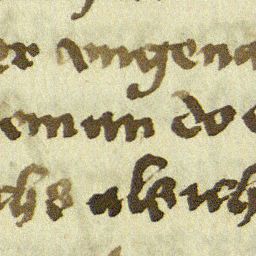 er angena
eman do e
chs als ich